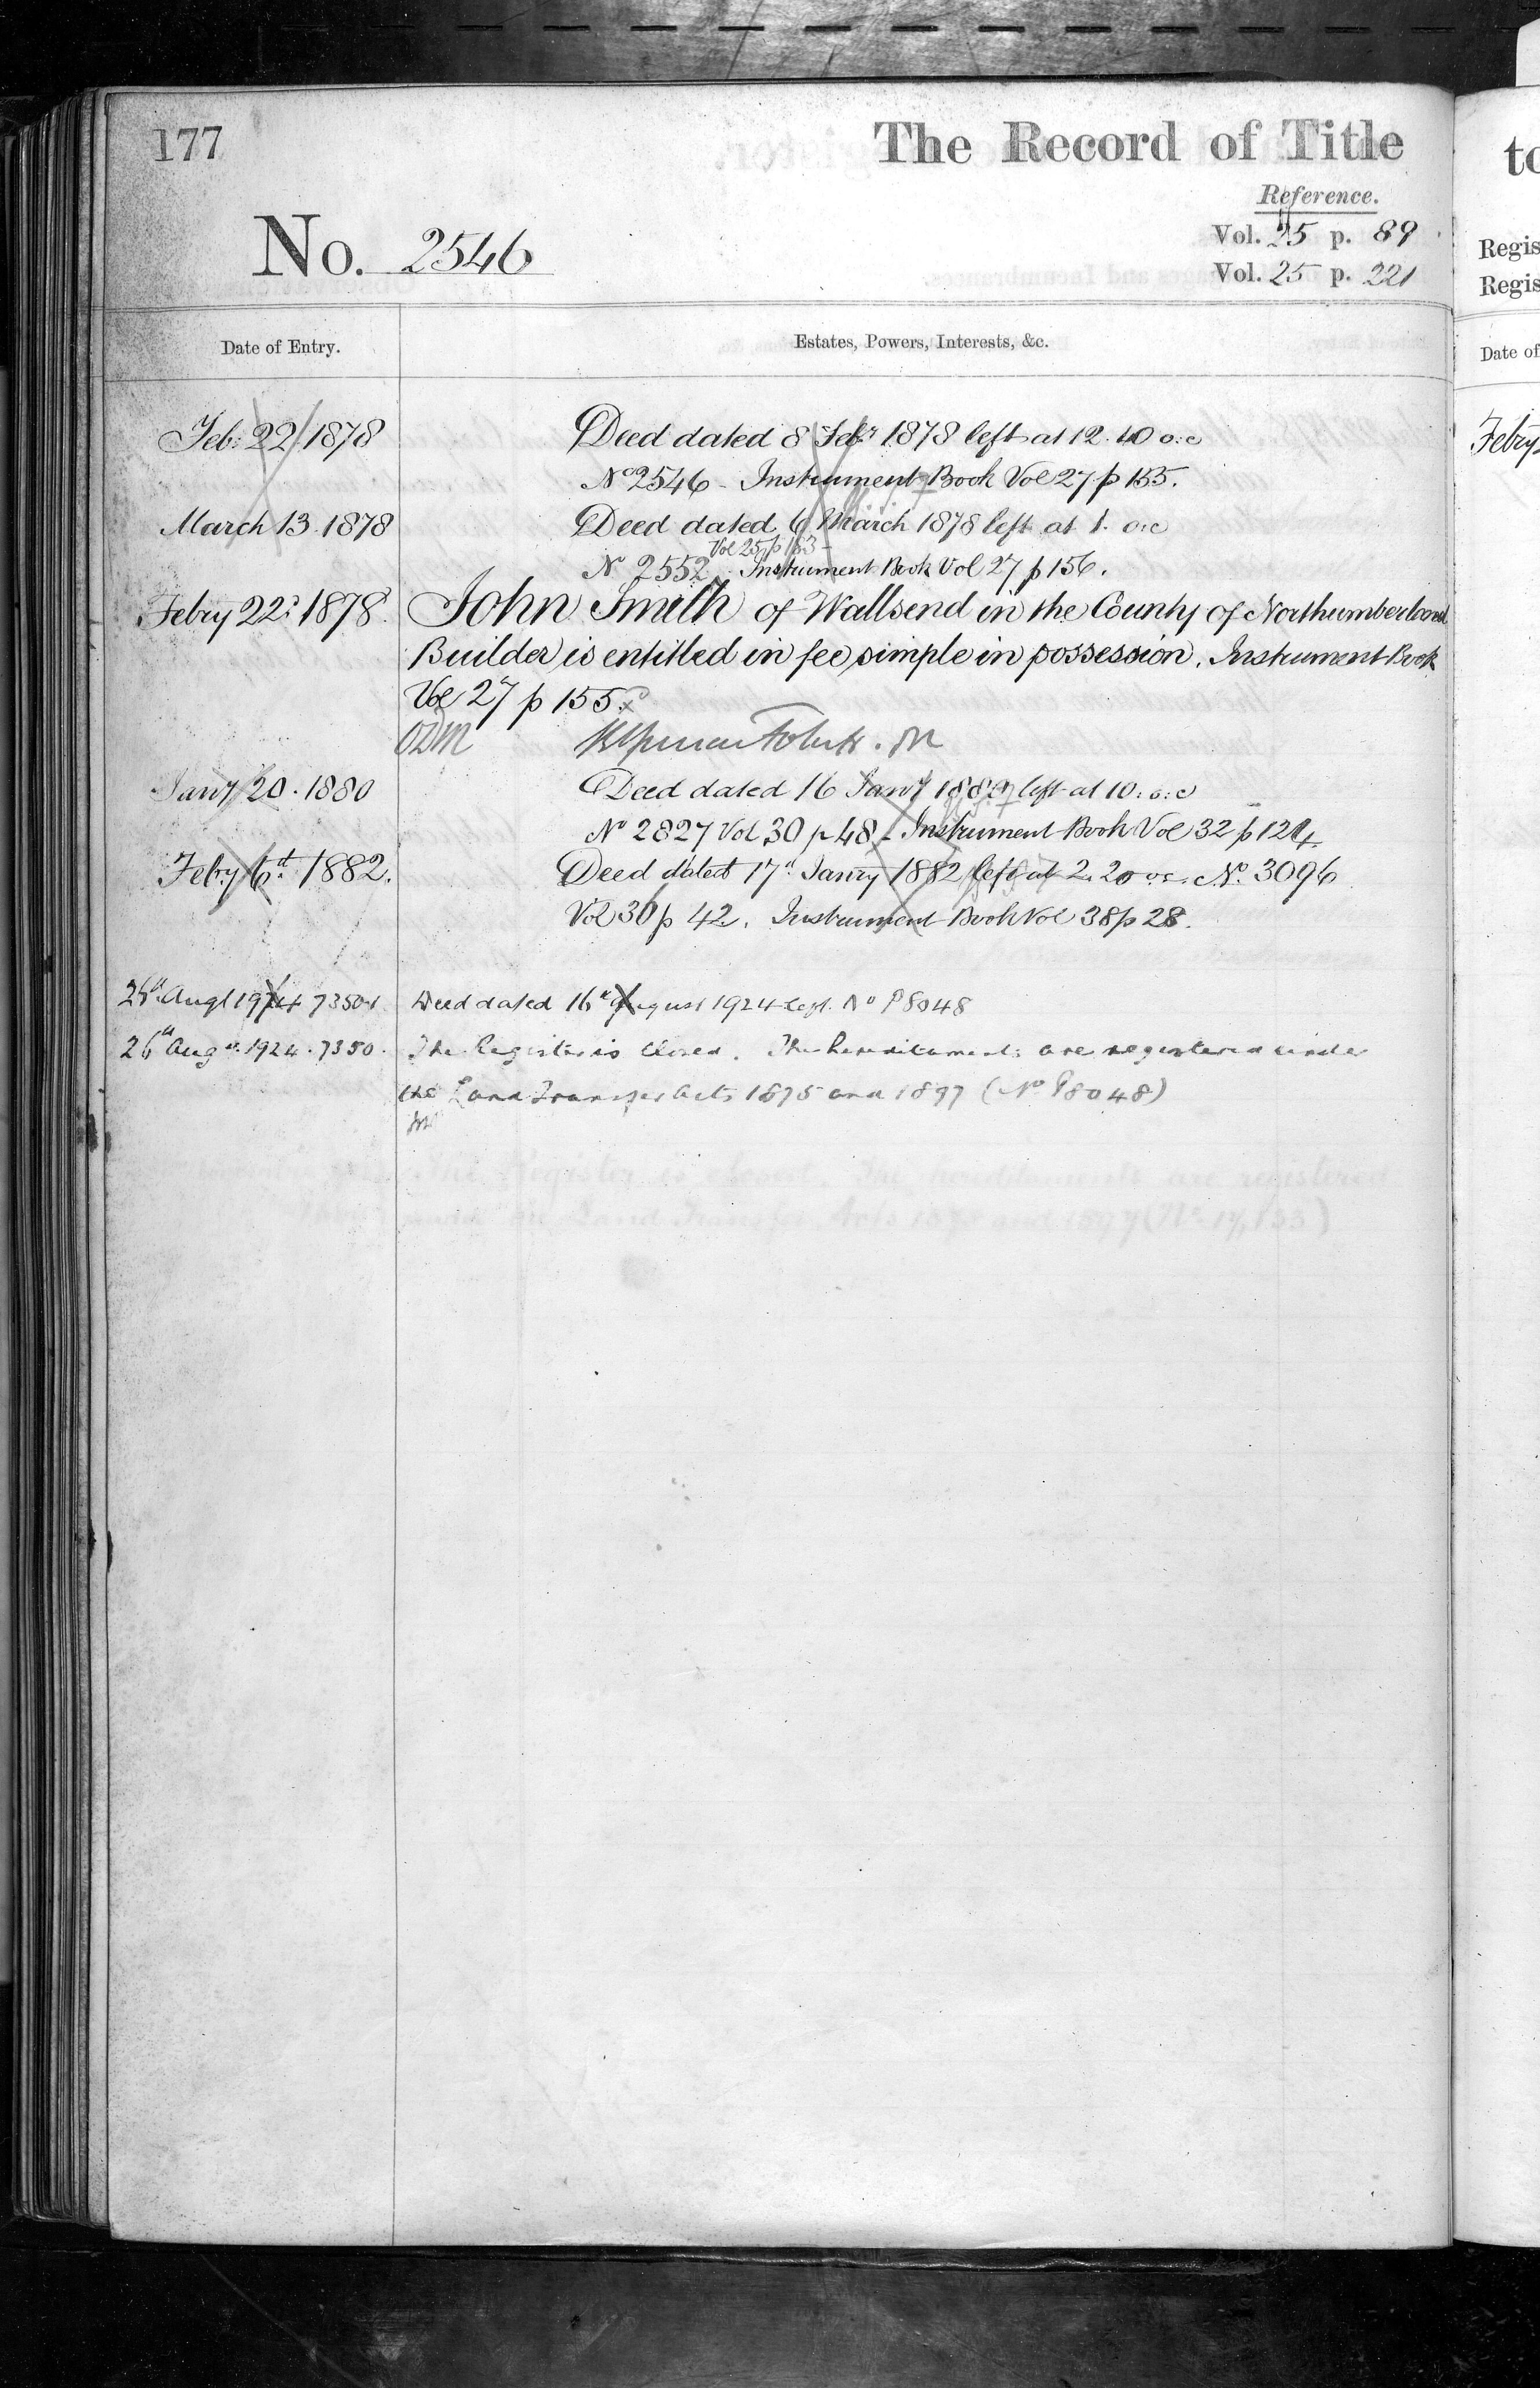 177
The Record of Title
Reference.
No. 2546
Vol. 25 p. 89
Vol. 25 p. 221
Date of Entry.
Estates, Powers, Interests, &c.
Feb: 22/1878 Deed dated 8 Feby 1878 left at 12.40 o:c
No 2546 - Instrument Book Vol 27 p 155.
March 13. 1878 Deed dated 6 March 1878 left at 1. o:c
Vol 25 p 183
No 2552 Instrument Book Vol 27 p 156.
Febry 22: 1878. John Smith of Wallsend in the County of Northumberland
Builder is entitled in fee simple in possession. Instrument Book
Vol 27 p 155.
Jany 20. 1880 Deed dated 16 Jany 1880 left at 10: o:c
No 2827 Vol 30 p 48 - Instrument Book Vol 32 p 124.
Febry 6th 1882. Deed dated 17th Janry 1882 left at 2.20 o:c. No. 3096
Vol 36 p 42. Instrument Book Vol 38 p 28.
Augt 1924 Deed dated 16th August 1924 left. No P8048
26th Augst 1924. 7350. The Register is closed. The hereditaments are registered under
the Land Transfer Acts 1875 and 1897 (No P8048)
to
Regis
Regis
Date of
Febry